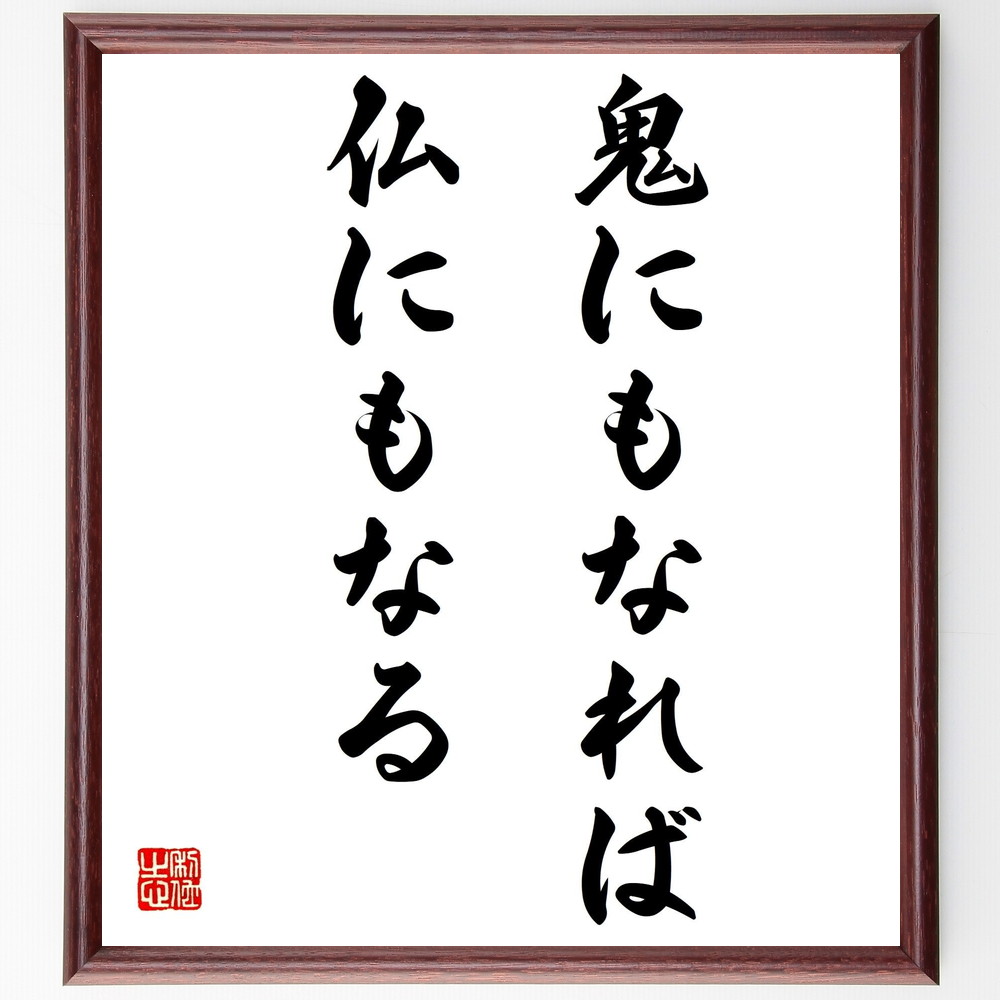 鬼にもなれば
仏にもなる